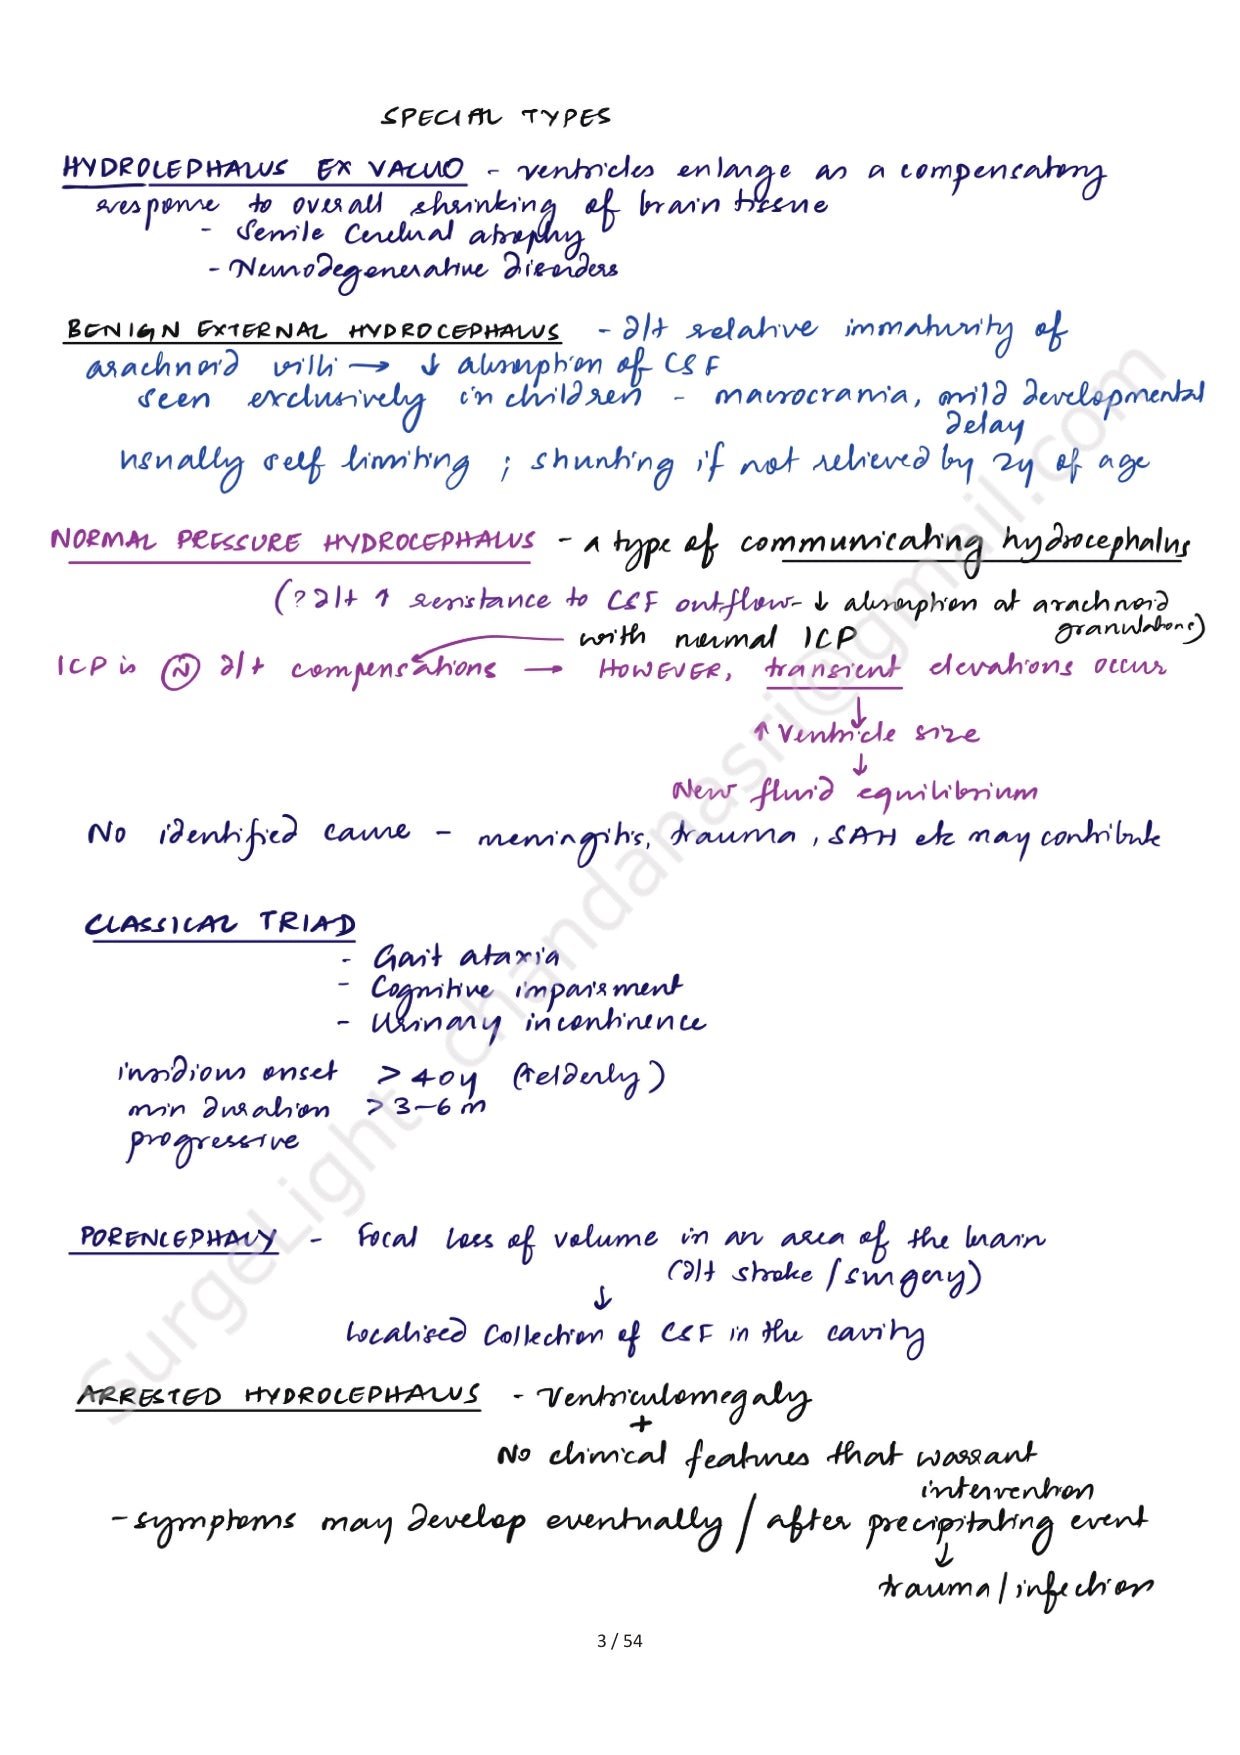 SPECIAL TYPES
HYDROCEPHALUS EX VACUO - ventricles enlarge as a compensatory
response to overall shrinking of brain tissue
- Senile Cerebral atrophy
- Neurodegenerative disorders
BENIGN EXTERNAL HYDROCEPHALUS - d/t relative immaturity of
arachnoid villi → ↓ absorption of CSF
seen exclusively in children - macrocrania, mild developmental
delay
usually self limiting ; shunting if not relieved by 2y of age
NORMAL PRESSURE HYDROCEPHALUS - a type of communicating hydrocephalus
(? d/t ↑ resistance to CSF outflow - ↓ absorption at arachnoid
granulations)
with normal ICP
ICP is (N) d/t compensations → HOWEVER, transient elevations occur
↓
↑ Ventricle size
↓
New fluid equilibrium
No identified cause - meningitis, trauma, SAH etc may contribute
CLASSICAL TRIAD
- Gait ataxia
- Cognitive impairment
- Urinary incontinence
insidious onset > 40y (↑elderly)
min duration > 3-6 m
progressive
PORENCEPHALY - Focal loss of volume in an area of the brain
(d/t stroke / surgery)
↓
Localised Collection of CSF in the cavity
ARRESTED HYDROCEPHALUS - Ventriculomegaly
+
No clinical features that warrant
intervention
- symptoms may develop eventually / after precipitating event
↓
trauma / infection
3 / 54
SurgeLight - chandanasri@gmail.com